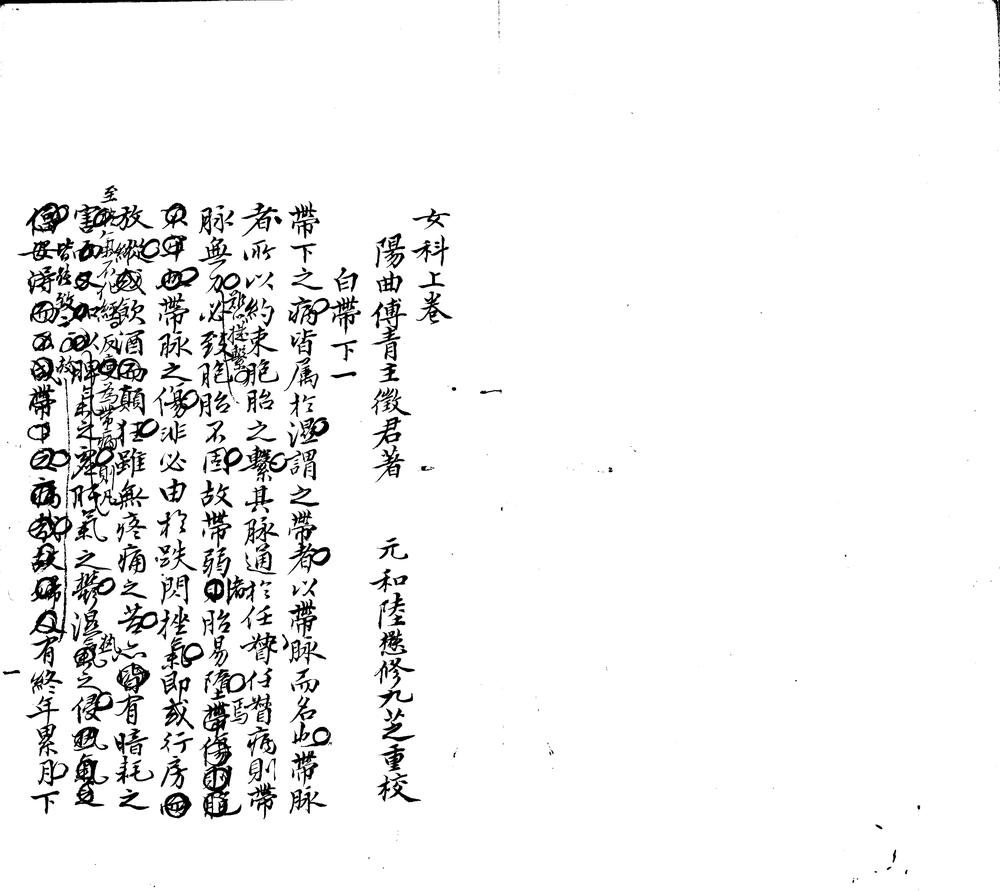 女科上卷
陽曲傅青主徵君著　元和陸懋修九芝重校
白帶下一
帶下之病皆屬於濕謂之帶者以帶脉而名也帶脉
者所以約束胞胎之繫其脉通於任督任督病則帶
脉無力必致胞胎不固故帶弱者胎易墮焉帶傷則胞
難提繫
帶脉之傷非必由於跌閃挫氣即或行房而
放縱或飲酒而顛狂雖無疼痛之苦亦有暗耗之
至 反變為帶病則凡
害而又加以脾氣之虛肝氣之鬱濕氣之侵熱氣
熱
皆能致之故
帶下之病哉故婦人有終年累月下
一
一